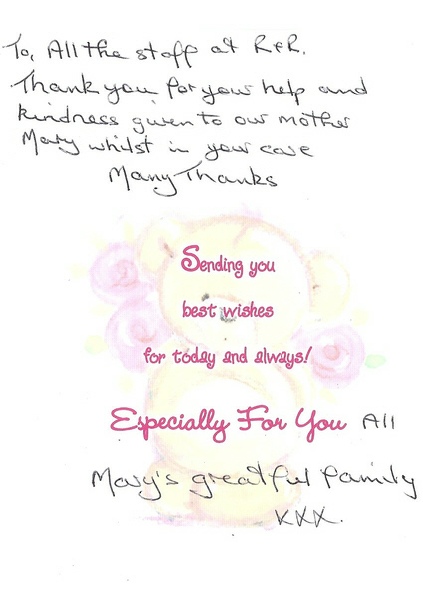 To, All the staff at R&R.
Thank you for your help and
kindness given to our mother
Mary whilst in your care
Many Thanks
Sending you
best wishes
for today and always!
Especially For You All
Mary's greatful family
xxx.